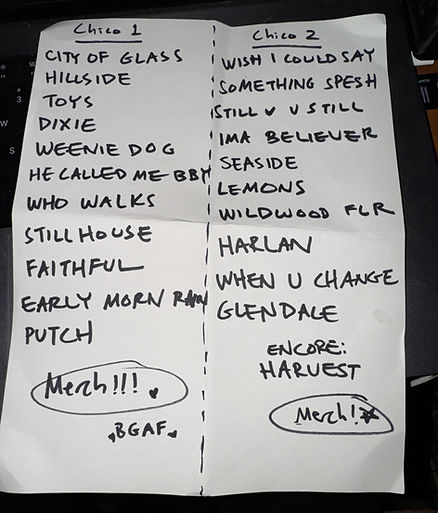 Chico 1
CITY OF GLASS
HILLSIDE
TOYS
DIXIE
WEENIE DOG
HE CALLED ME BBY
WHO WALKS
STILL HOUSE
FAITHFUL
EARLY MORN RAIN
PUTCH
Merch!!!
BGAF
Chico 2
WISH I COULD SAY
SOMETHING SPESH
STILL U U STILL
IMA BELIEVER
SEASIDE
LEMONS
WILDWOOD FLR
HARLAN
WHEN U CHANGE
GLENDALE
ENCORE:
HARVEST
Merch!